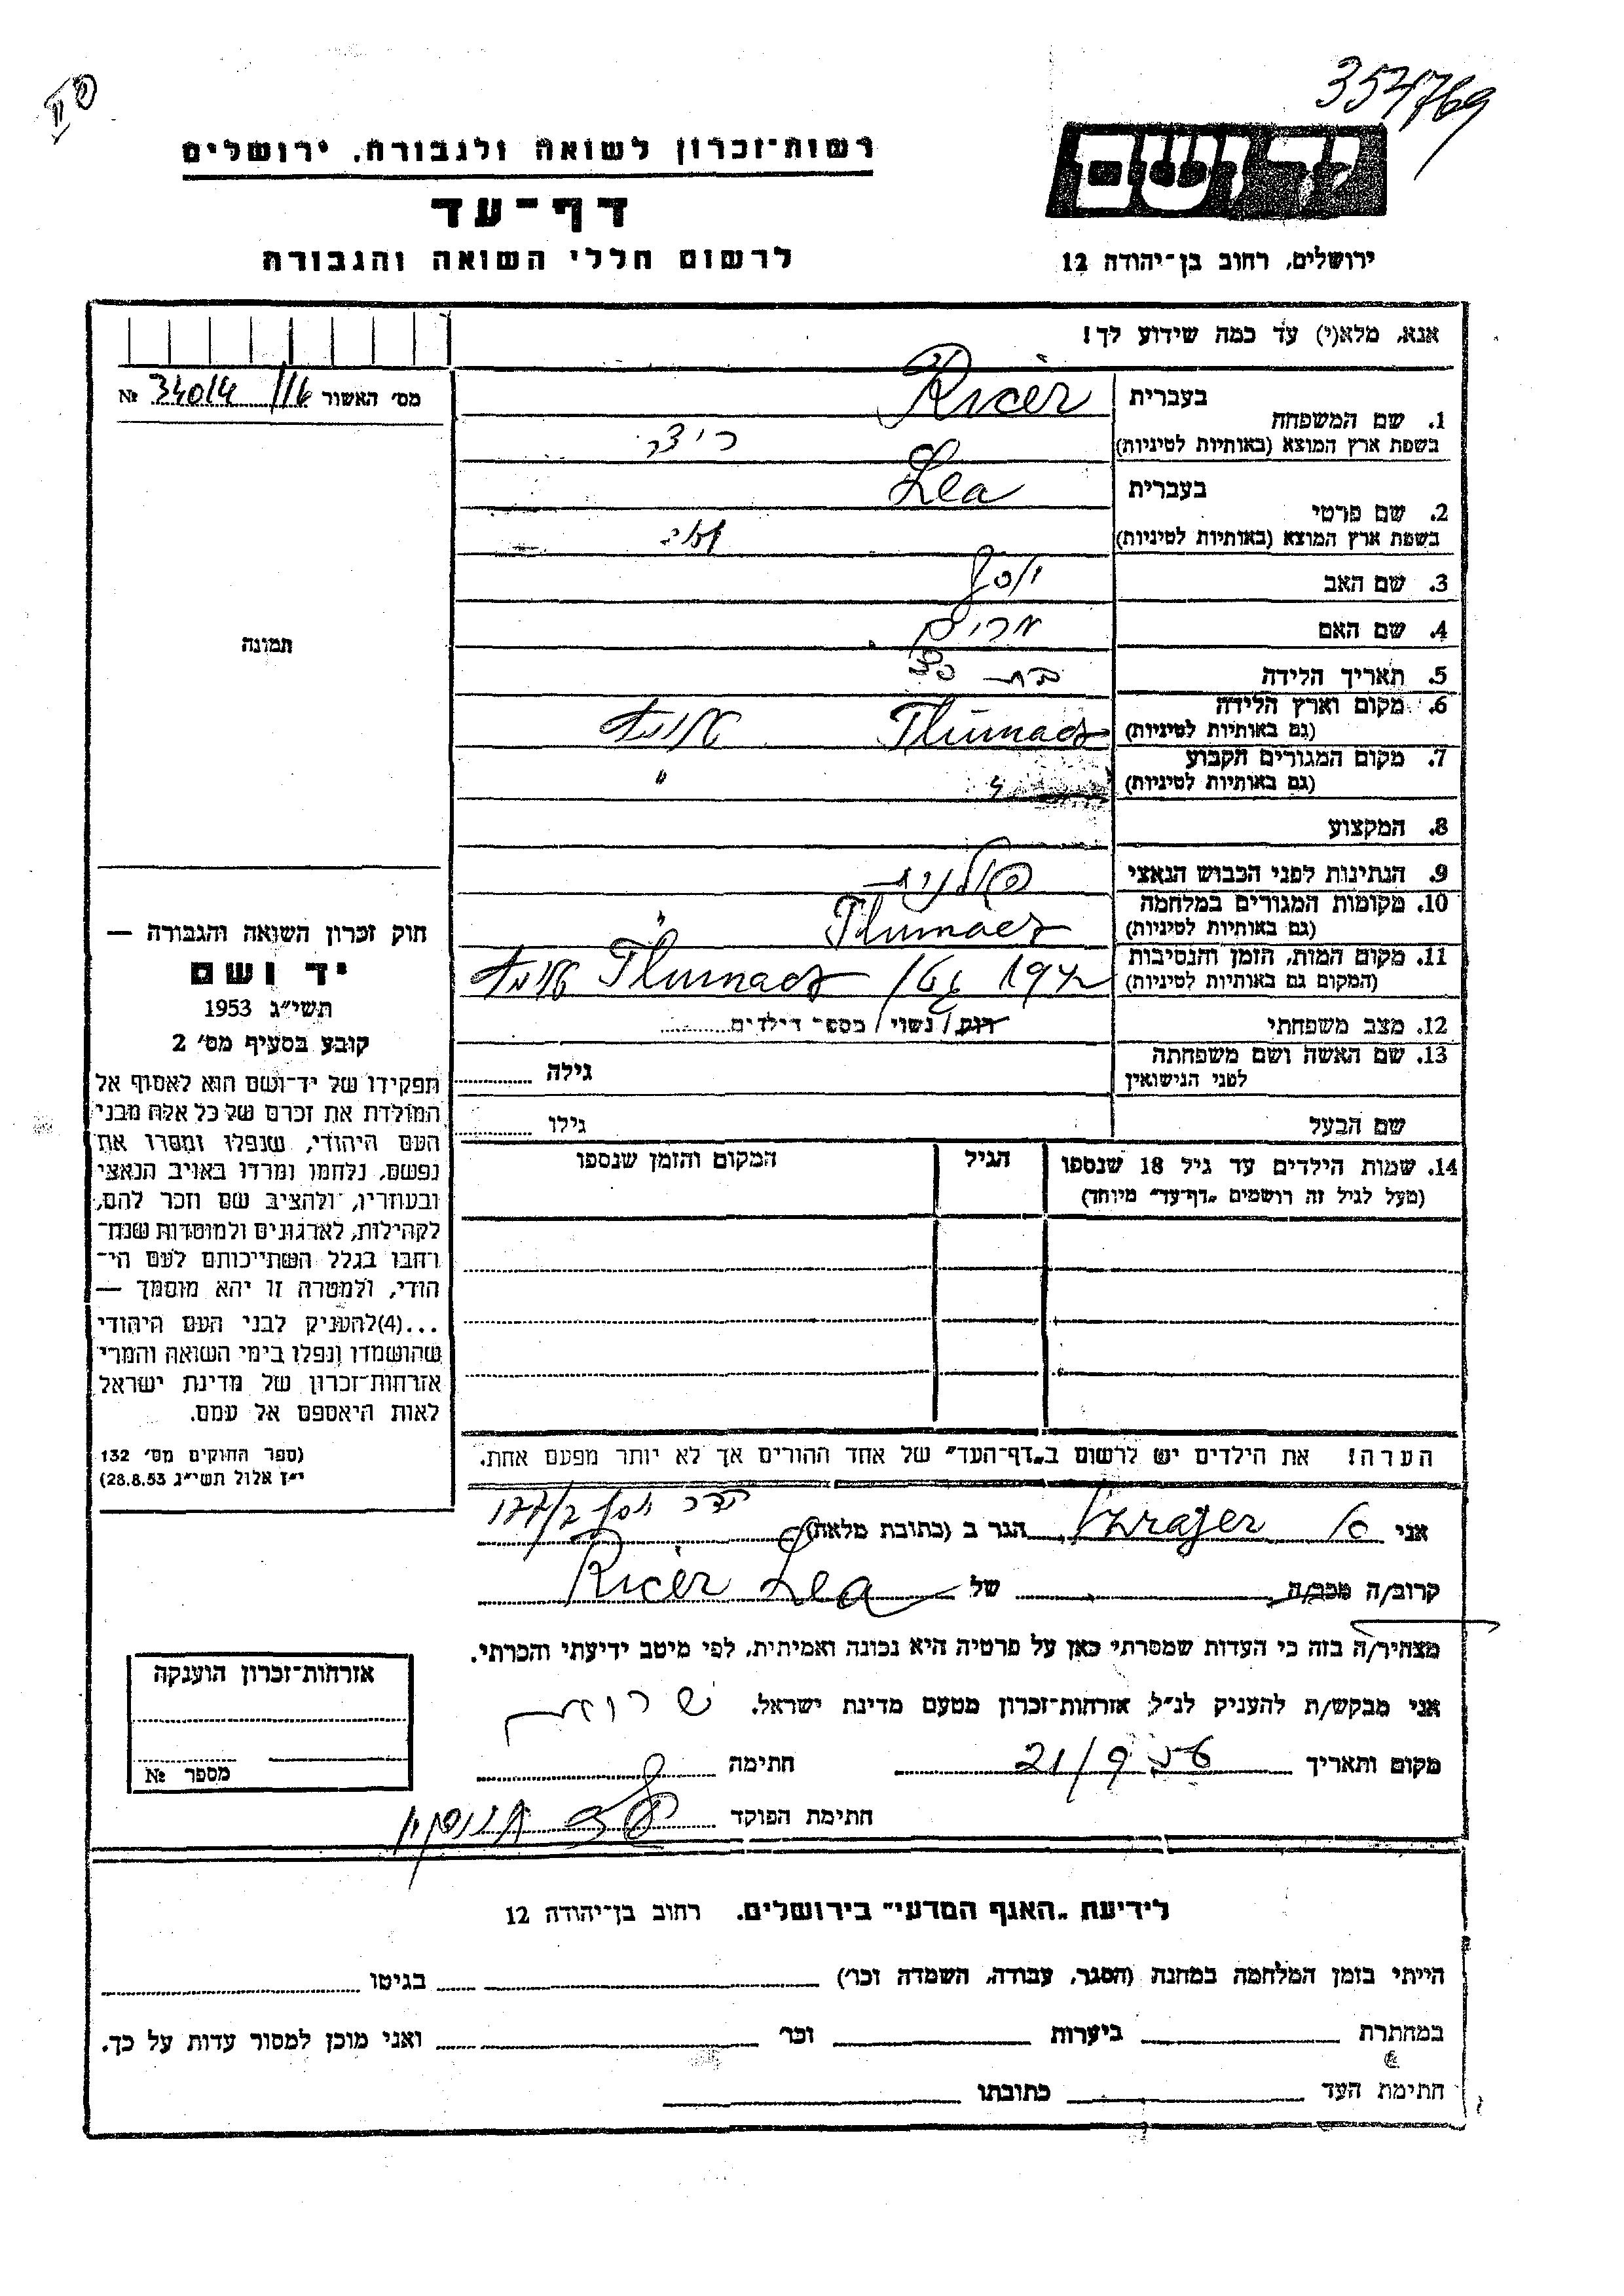 354769
רשות־זכרון לשואה ולגבורה. ירושלים
יד ושם
דף־עד
לרשום חללי השואה והגבורה
ירושלים, רחוב בן־יהודה 12
אנא, מלא(י) עד כמה שידוע לך!
מס׳ האשור 116/ 34014 №
תמונה
בעברית Ricer
1. שם המשפחה
בשפת ארץ המוצא (באותיות לטיניות) ריצר
בעברית Lea
2. שם פרטי
בשפת ארץ המוצא (באותיות לטיניות)
3. שם האב יוסף
4. שם האם מרים
5. תאריך הלידה בת
6. מקום וארץ הלידה Tlumacz
(גם באותיות לטיניות)
7. מקום המגורים הקבוע " "
(גם באותיות לטיניות)
8. המקצוע
9. הנתינות לפני הכבוש הנאצי פולנית
10. מקומות המגורים במלחמה Tlumacz "
(גם באותיות לטיניות)
11. מקום המות, הזמן והנסיבות Tlumacz
(המקום גם באותיות לטיניות)
12. מצב משפחתי רווק / נשוי / מספר הילדים
13. שם האשה ושם משפחתה גילה
לפני הנישואין
שם הבעל גילו
14. שמות הילדים עד גיל 18 שנספו הגיל המקום והזמן שנספו
(מעל לגיל זה רושמים „דף־עד״ מיוחד)
הערה! את הילדים יש לרשום ב„דף־העד״ של אחד ההורים אך לא יותר מפעם אחת.
חוק זכרון השואה והגבורה —
יד ושם
תשי״ג 1953
קובע בסעיף מס׳ 2
תפקידו של יד־ושם הוא לאסוף אל
המולדת את זכרם של כל אלה מבני
העם היהודי, שנפלו ומסרו את
נפשם, נלחמו ומרדו באויב הנאצי
ובעוזריו, ולהציב שם וזכר להם,
לקהילות, לארגונים ולמוסדות שנח־
רחבו בגלל השתייכותם לעם הי־
הודי, ולמטרה זו יהא מוסמך —
...(4)להעניק לבני העם היהודי
שהושמדו ונפלו בימי השואה והמרי
אזרחות־זכרון של מדינת ישראל
לאות היאספם אל עמם.
(ספר החוקים מס׳ 132
י״ז אלול תשי״ג 28.8.53)
אני Szrajer הגר ב (כתובת מלאה)
קרוב/ה מכר/ה של Ricer Lea
מצהיר/ה בזה כי העדות שמסרתי כאן על פרטיה היא נכונה ואמיתית, לפי מיטב ידיעתי והכרתי.
אני מבקש/ת להעניק לנ״ל אזרחות־זכרון מטעם מדינת ישראל.
מקום ותאריך 21/9 חתימה
חתימת הפוקד
אזרחות־זכרון הוענקה
מספר №
לידיעת „האגף המדעי״ בירושלים. רחוב בן־יהודה 12
הייתי בזמן המלחמה במחנה (הסגר, עבודה, השמדה וכו׳) בגיטו
במחתרת ביערות וכו׳ ואני מוכן למסור עדות על כך.
חתימת העד כתובתו